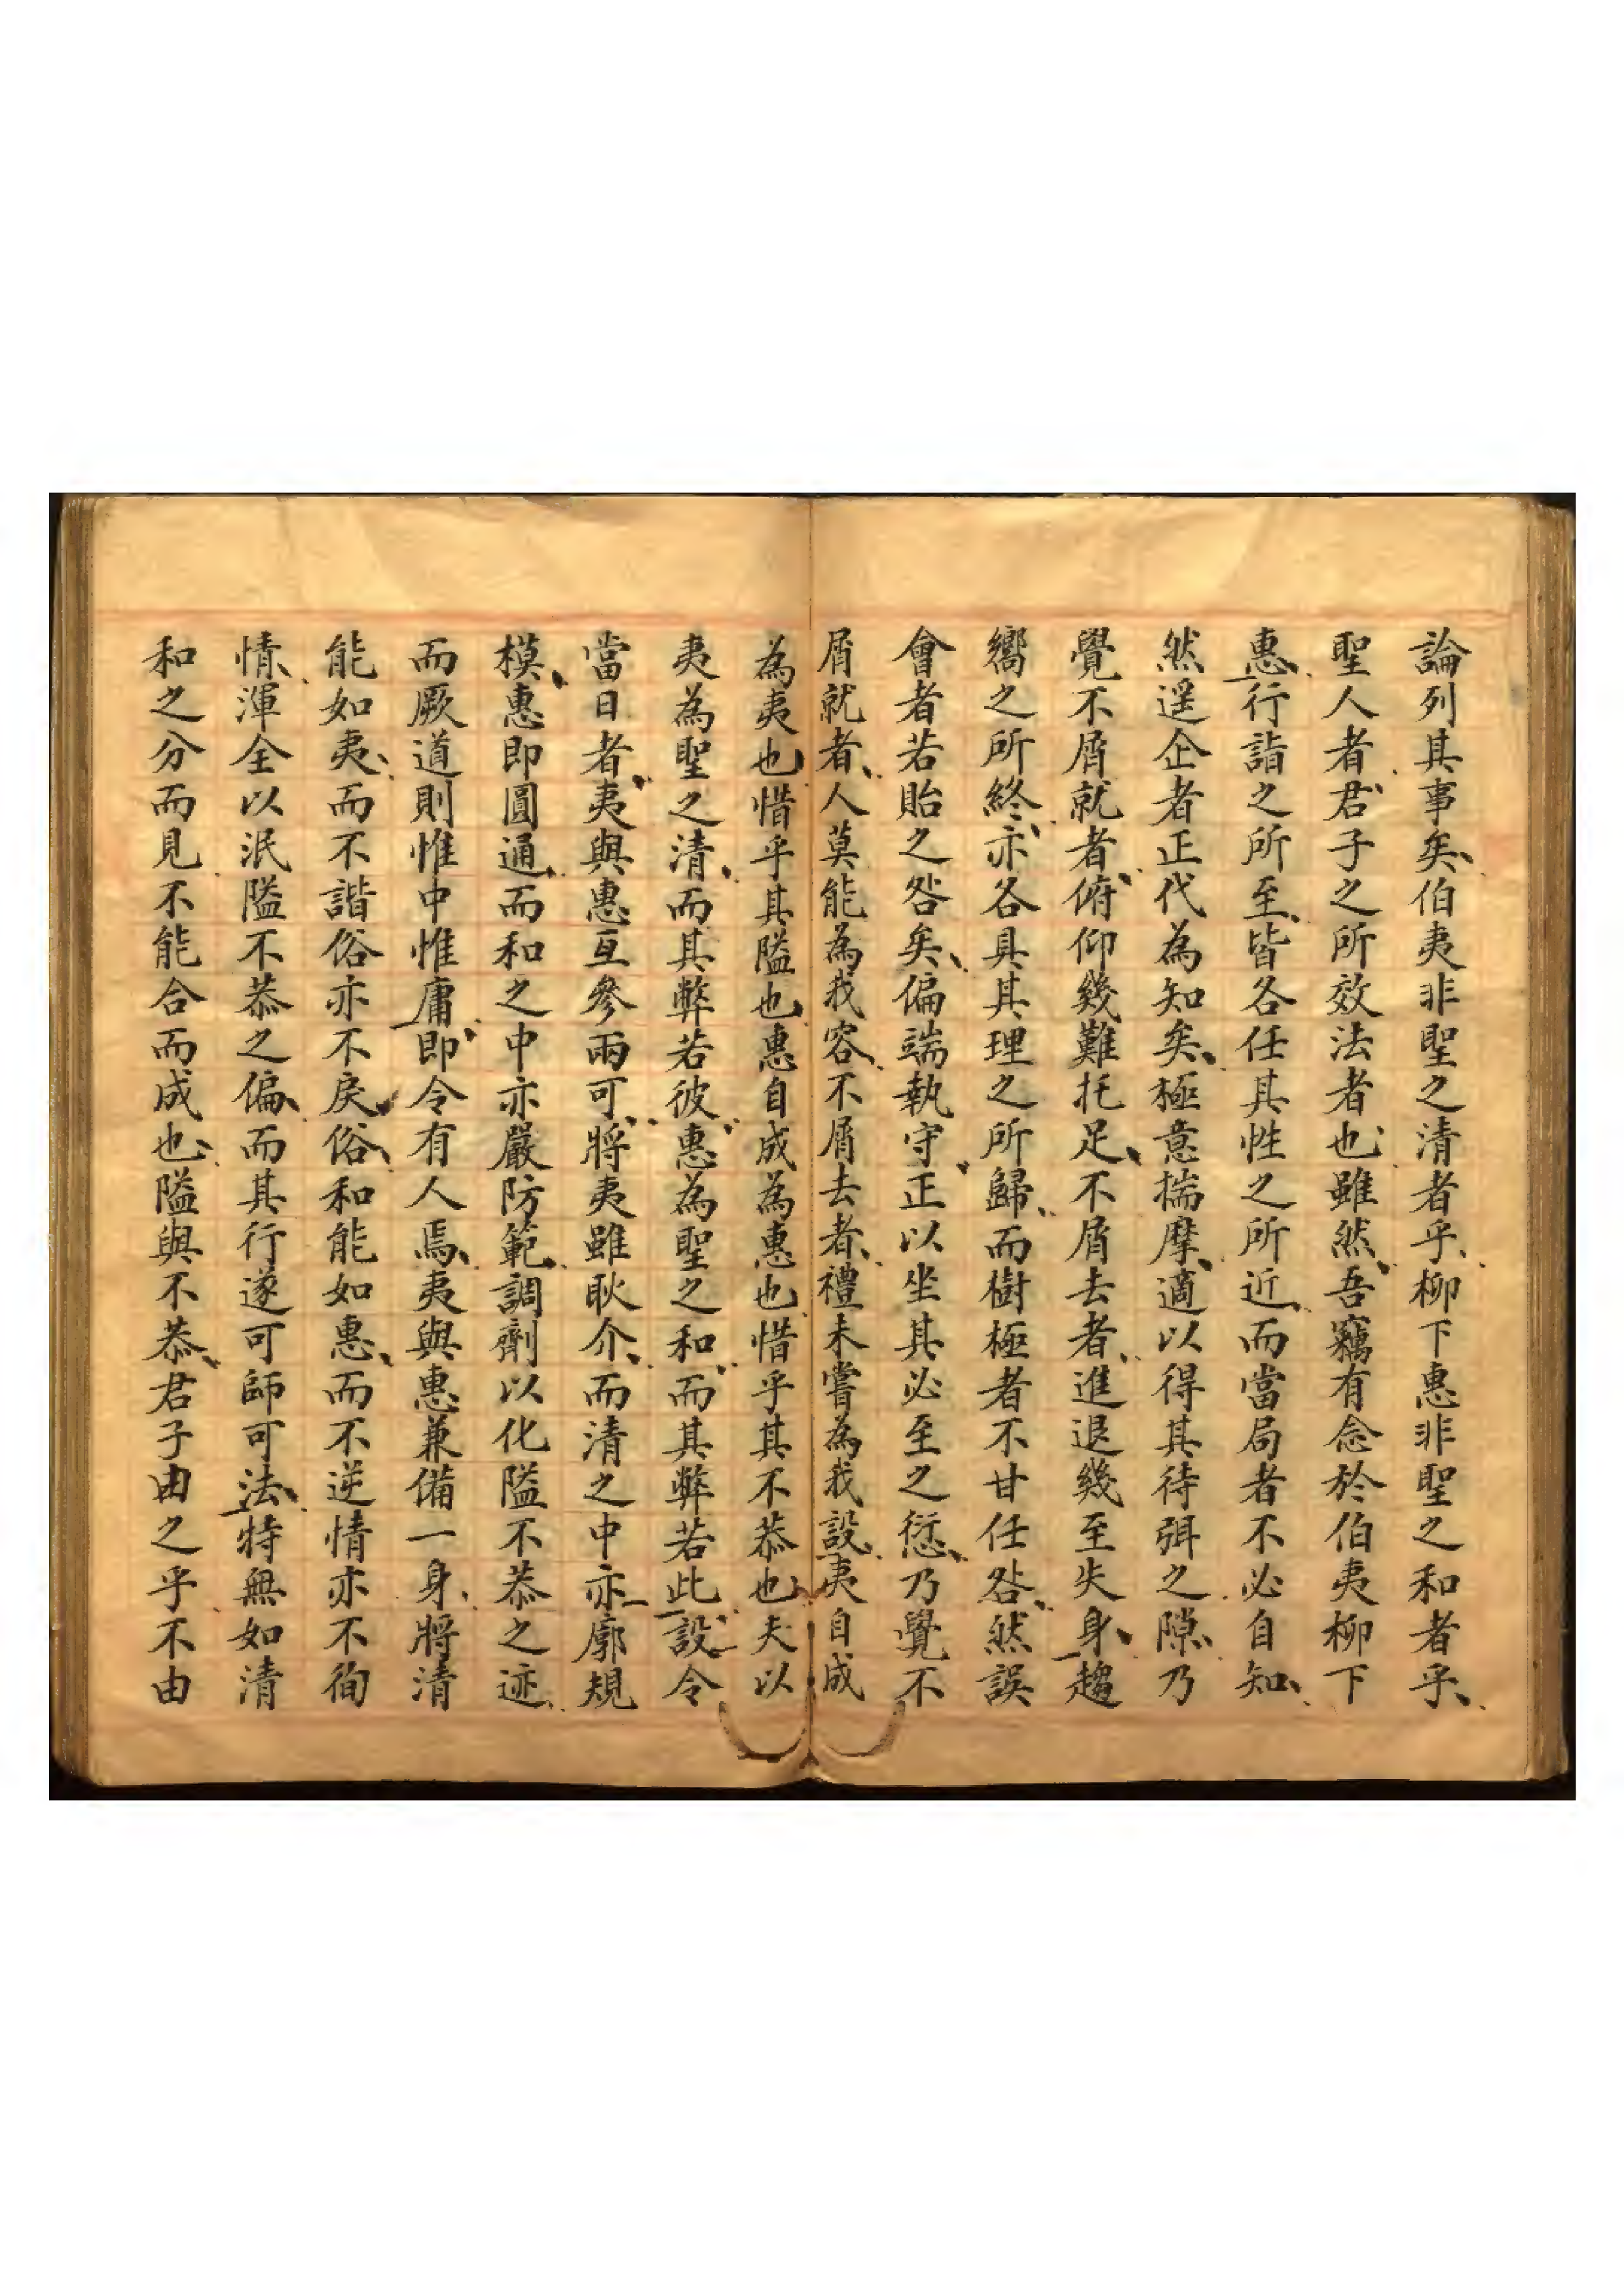 論列其事矣伯夷非聖之清者乎柳下惠非聖之和者乎
聖人者君子之所效法者也雖然吾竊有念於伯夷柳下
惠行詣之所至皆各任其性之所近而當局者不必自知
然遥企者正代為知矣極意揣摩適以得其待弭之隙乃
覺不屑就者俯仰幾難托足不屑去者進退幾至失身趨
嚮之所終亦各具其理之所歸而樹極者不甘任咎然誤
會者若貽之咎矣偏端執守正以坐其必至之愆乃覺不
屑就者人莫能為我容不屑去者禮未嘗為我設夷自成
為夷也惜乎其隘也惠自成為惠也惜乎其不恭也夫以
夷為聖之清而其弊若彼惠為聖之和而其弊若此設令
當日者夷與惠互參兩可將夷雖耿介而清之中亦廓規
模惠即圓通而和之中亦嚴防範調劑以化隘不恭之迹
而厥道則惟中惟庸即令有人焉夷與惠兼備一身將清
能如夷而不諧俗亦不戾俗和能如惠而不逆情亦不徇
情渾全以泯隘不恭之偏而其行遂可師可法特無如清
和之分而見不能合而成也隘與不恭君子由之乎不由